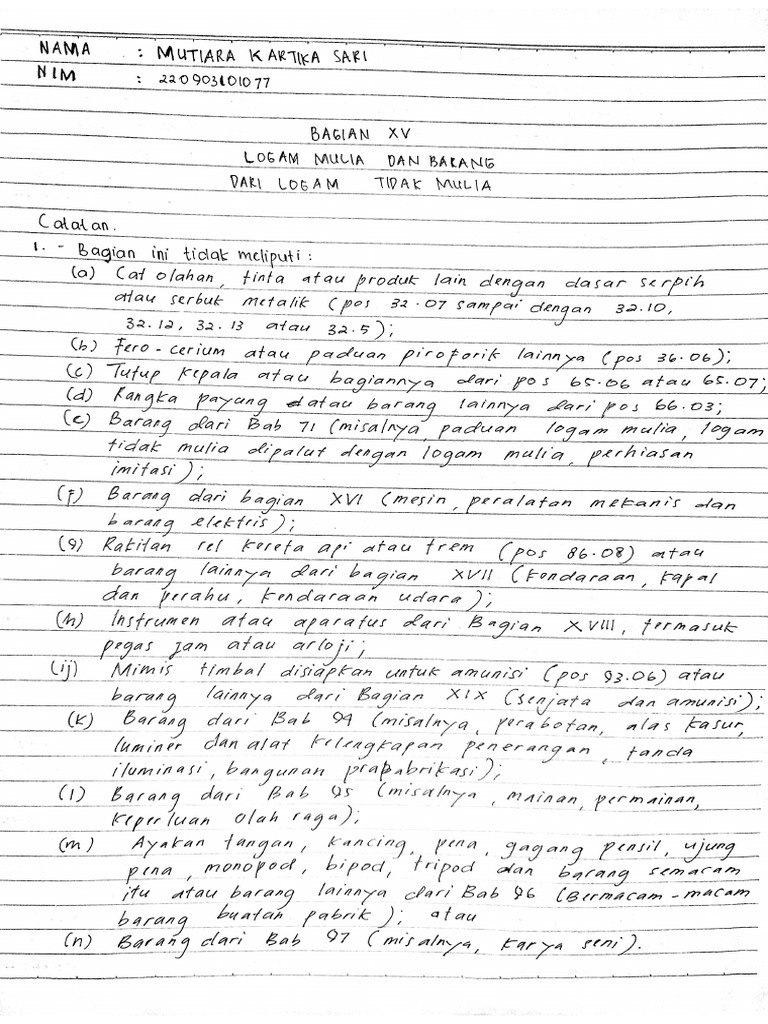 NAMA : MUTIARA KARTIKA SARI
NIM : 220903101077
BAGIAN XV
LOGAM MULIA DAN BARANG
DARI LOGAM TIDAK MULIA
Catatan.
1. - Bagian ini tidak meliputi :
(a) Cat olahan, tinta atau produk lain dengan dasar serpih
atau serbuk metalik (pos 32.07 sampai dengan 32.10,
32.12, 32.13 atau 32.5);
(b) Fero-cerium atau paduan piroforik lainnya (pos 36.06);
(c) Tutup kepala atau bagiannya dari pos 65.06 atau 65.07;
(d) Rangka payung atau barang lainnya dari pos 66.03;
(e) Barang dari Bab 71 (misalnya, paduan logam mulia, logam
tidak mulia dipalut dengan logam mulia, perhiasan
imitasi);
(f) Barang dari bagian XVI (mesin, peralatan mekanis dan
barang elektris);
(g) Rakitan rel kereta api atau trem (pos 86.08) atau
barang lainnya dari bagian XVII (kendaraan, kapal
dan perahu, kendaraan udara);
(h) Instrumen atau aparatus dari Bagian XVIII, termasuk
pegas jam atau arloji;
(ij) Mimis timbal disiapkan untuk amunisi (pos 93.06) atau
barang lainnya dari Bagian XIX (senjata dan amunisi);
(k) Barang dari Bab 94 (misalnya, perabotan, alas kasur,
luminer dan alat kelengkapan penerangan, tanda
iluminasi, bangunan prapabrikasi);
(l) Barang dari Bab 95 (misalnya, mainan, permainan,
keperluan olah raga);
(m) Ayakan tangan, kancing, pena, gagang pensil, ujung
pena, monopod, bipod, tripod dan barang semacam
itu atau barang lainnya dari Bab 96 (Bermacam-macam
barang buatan pabrik); atau
(n) Barang dari Bab 97 (misalnya, karya seni).